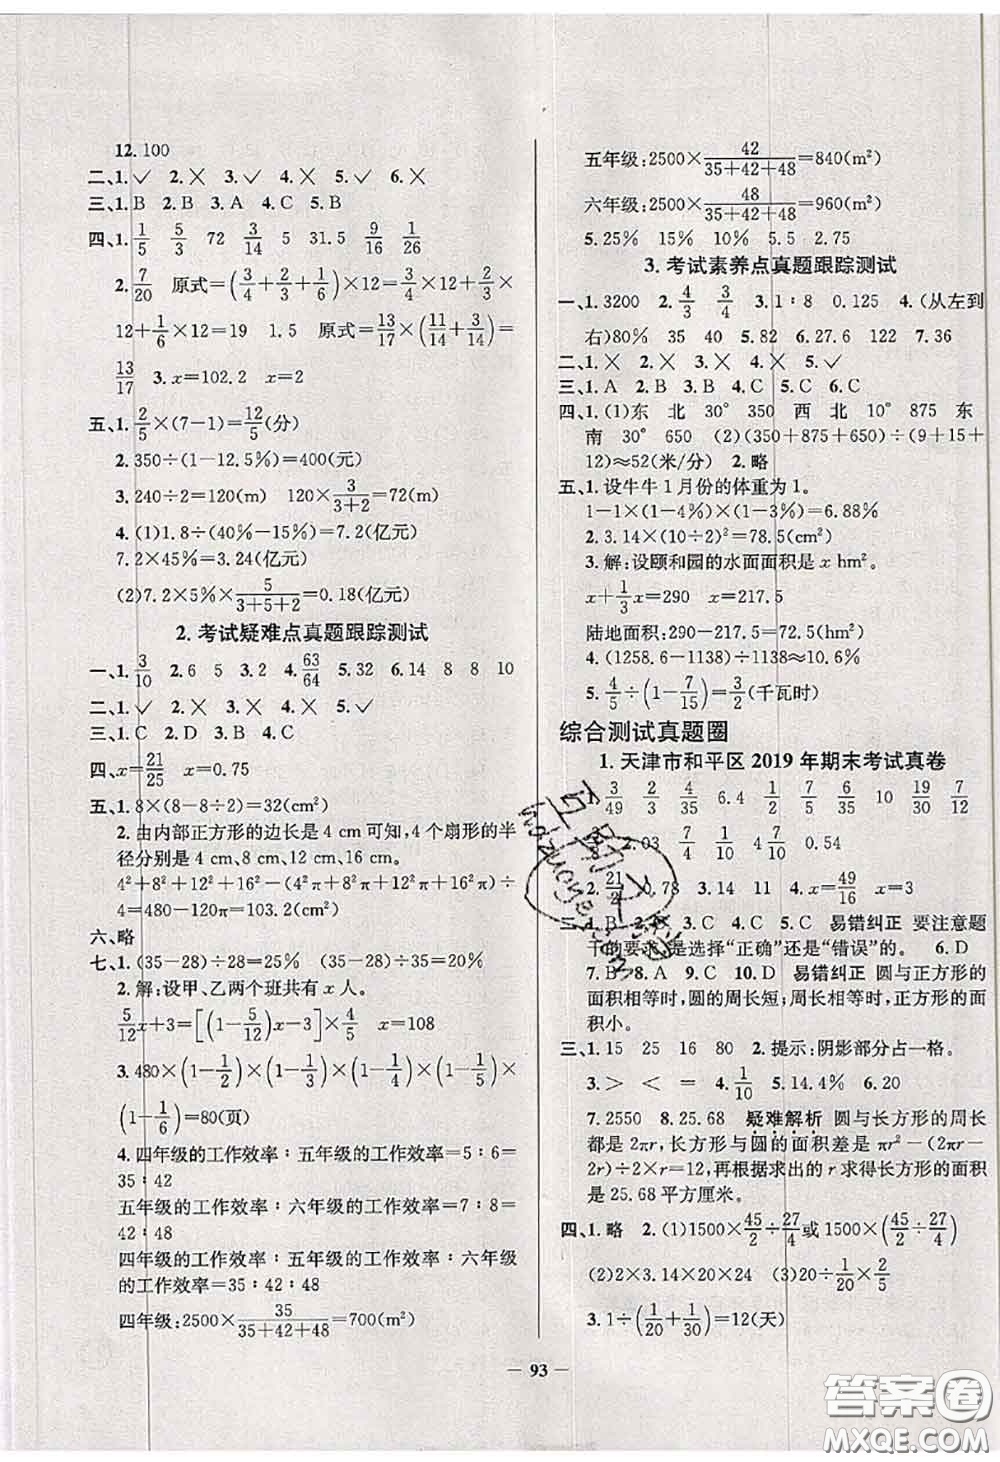 12.100
二、1.✓ 2.✕ 3.✓ 4.✕ 5.✓ 6.✕
三、1.B 2.B 3.A 4.C 5.B
四、1. 1/5 5/3 72 3/14 5 31.5 9/16 1/26
2. 7/20 原式=(3/4+3/2+1/6)×12=3/4×12+3/2×
12+1/6×12=19 1.5 原式=13/17×(11/14+3/14)=
13/17 3.x=102.2 x=2
五、1. 2/5×(7−1)=12/5(分)
2.350÷(1−12.5%)=400(元)
3.240÷2=120(m) 120×3/(3+2)=72(m)
4.(1)1.8÷(40%−15%)=7.2(亿元)
7.2×45%=3.24(亿元)
(2)7.2×5%×5/(3+5+2)=0.18(亿元)
2.考试疑难点真题跟踪测试
一、1. 3/10 2.6 5 3.2 4. 63/64 5.32 6.14 8 8 10
二、1.✓ 2.✕ 3.✕ 4.✕ 5.✓
三、1.C 2.D 3.B 4.A 5.C
四、x=21/25 x=0.75
五、1.8×(8−8÷2)=32(cm²)
2.由内部正方形的边长是4 cm可知,4个扇形的半
径分别是4 cm、8 cm、12 cm、16 cm。
4²+8²+12²+16²−(4²π+8²π+12²π+16²π)÷
4=480−120π=103.2(cm²)
六、略
七、1.(35−28)÷28=25% (35−28)÷35=20%
2.解:设甲、乙两个班共有x人。
5/12x+3=[(1−5/12)x−3]×4/5 x=108
3.480×(1−1/2)×(1−1/3)×(1−1/4)×(1−1/5)×
(1−1/6)=80(页)
4.四年级的工作效率∶五年级的工作效率=5∶6=
35∶42
五年级的工作效率∶六年级的工作效率=7∶8=
42∶48
四年级的工作效率∶五年级的工作效率∶六年级
的工作效率=35∶42∶48
四年级:2500×35/(35+42+48)=700(m²)
五年级:2500×42/(35+42+48)=840(m²)
六年级:2500×48/(35+42+48)=960(m²)
5.25% 15% 10% 5.5 2.75
3.考试素养点真题跟踪测试
一、1.3200 2. 4/3 3/4 3.1∶8 0.125 4.(从左到
右)80% 35 40 5.82 6.27.6 122 7.36
二、1.✕ 2.✕ 3.✕ 4.✕ 5.✓
三、1.A 2.B 3.B 4.C 5.C 6.C
四、1.(1)东 北 30° 350 西 北 10° 875 东
南 30° 650 (2)(350+875+650)÷(9+15+
12)≈52(米/分) 2.略
五、1.设牛牛1月份的体重为1。
1−1×(1−4%)×(1−3%)=6.88%
2.3.14×(10÷2)²=78.5(cm²)
3.解:设颐和园的水面面积是x hm²。
x+1/3x=290 x=217.5
陆地面积:290−217.5=72.5(hm²)
4.(1258.6−1138)÷1138≈10.6%
5. 4/5÷(1−7/15)=3/2(千瓦时)
综合测试真题圈
1.天津市和平区2019年期末考试真卷
一、1. 3/49 2/3 4/35 6.4 1/2 7/5 6/35 10 19/30 7/12
2.03 7/4 1/10 40 0.54
2. 0.78 3.14 11 4.x=49/16 x=3
二、1.B 2.C 3.C 4.C 5.C 易错纠正 要注意题
干的要求,是选择“正确”还是“错误”的。 6.D
7.B 8.A 9.C 10.D 易错纠正 圆与正方形的
面积相等时,圆的周长短;周长相等时,正方形的面
积小。
三、1.15 25 16 80 2.提示:阴影部分占一格。
3.> < = 4. 1/10 5.14.4% 6.20
7.2550 8.25.68 疑难解析 圆与长方形的周长
都是2πr,长方形与圆的面积差是πr²−(2πr−
2r)÷2×r=12,再根据求出的r求得长方形的面积
是25.68平方厘米。
四、1.略 2.(1)1500×45/2÷27/4或1500×(45/2÷27/4)
(2)2×3.14×20×24 (3)20÷1/20×2/5
3.1÷(1/20+1/30)=12(天)
— 93 —
答案圈
MXQE.COM